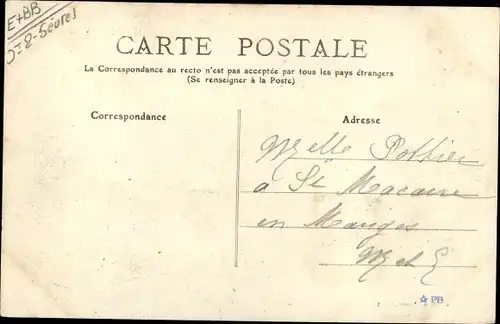 E+BB
Dt 2-Sèvres
CARTE POSTALE
La Correspondance au recto n'est pas acceptée par tous les pays étrangers
(Se renseigner à la Poste)
Correspondance
Adresse
Melle Pothier
a St Macaire
en Mauges
M et L
PB